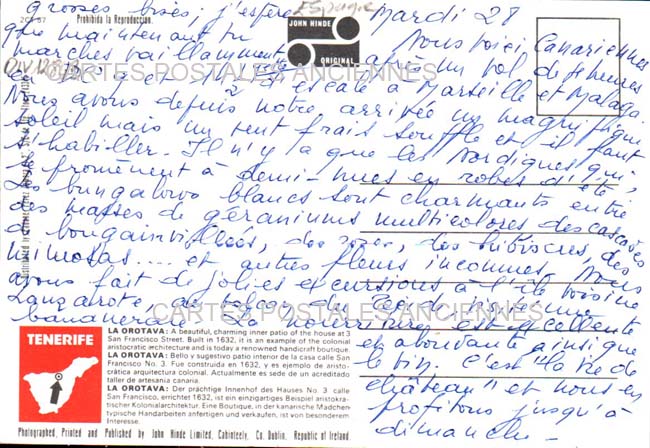 Mardi 28
Nous voici Canariennes
avec un vol de jeunes
escale à Marseille et Malaga.
Nous avons depuis notre arrivée un magnifique
soleil mais un vent frais souffle et il faut
s'habiller. Il n'y a que les Nordiques qui
se promènent à demi-nues en robes d'été
Les bungalows blancs sont charmants entre
des masses de géraniums multicolores, des cascades
de bougainvillées, des roses, des hibiscus, des
mimosas.... et autres fleurs inconnues. Nous
avons fait de jolies excursions à l'île voisine
Lanzarote,
bananeraies. La nourriture est excellente
et abondante ainsi que
le vin. C'est "la vie de
château" et nous en
profitons jusqu'à
dimanche -
grosses bises; j'espère
que maintenant tu
marches vaillamment
Espagne
2C4-67
Prohibida la Reproduccion.
JOHN HINDE
ORIGINAL
CARTES POSTALES ANCIENNES
CARTES POSTALES ANCIENNES
TENERIFE
LA OROTAVA: A beautiful, charming inner patio of the house at 3
San Francisco Street. Built in 1632, it is an example of the colonial
aristocratic architecture and is today a renowned handicraft boutique.
LA OROTAVA: Bello y sugestivo patio interior de la casa calle San
Francisco No. 3. Fue construida en 1632, y es ejemplo de aristo-
crática arquitectura colonial. Actualmente es sede de un acreditado
taller de artesania canaria.
LA OROTAVA: Der prächtige Innenhof des Hauses No. 3 calle
San Francisco, errichtet 1632, ist ein einzigartiges Beispiel aristok-
ratischer Kolonialarchitektur. Eine Boutique, in der kanarische Mädchen
typische Handarbeiten anfertigen und verkaufen, ist von besonderem
Interesse.
Photographed, Printed and Published by John Hinde Limited, Cabinteely, Co. Dublin, Republic of Ireland.